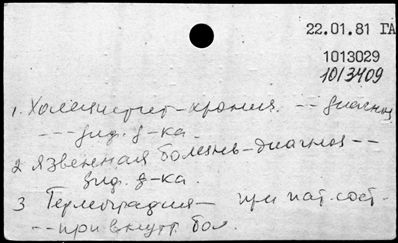 22.01.81 ГА
1013029
1013409
1. Холецистит-хрония. -- диагноз
--- энд. д-ка.
2 Язвенная болезнь-диагноз --
энд. д-ка.
3 Термография — при пат. сост-
-- при внутр. бол.